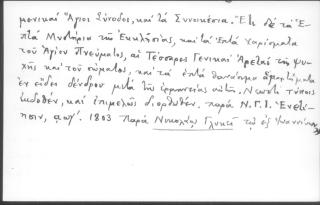 μενικαὶ Ἅγιοι Σύνοδοι, καὶ τὰ Συνοικέσια. Ἔτι δὲ τὰ Ἑ-
πτὰ Μυστήρια τῆς Ἐκκλησίας, καὶ τὰ Ἑπτὰ Χαρίσματα
τοῦ Ἁγίου Πνεύματος, αἱ Τέσσαρες Γενικαὶ Ἀρεταὶ τῆς ψυ-
χῆς καὶ τοῦ σώματος, καὶ τὰ ἑπτὰ θανάσιμα ἁμαρτήματα
ἐν εἴδει δένδρου μετὰ τῆς ἑρμηνείας αὐτῶν. Νεωστὶ τύποις
ἐκδοθέν, καὶ ἐπιμελῶς διορθωθέν. παρὰ
αωγʹ. 1803 Παρὰ Νικολάῳ Γλυκεῖ τῷ ἐξ Ἰωαννίνων